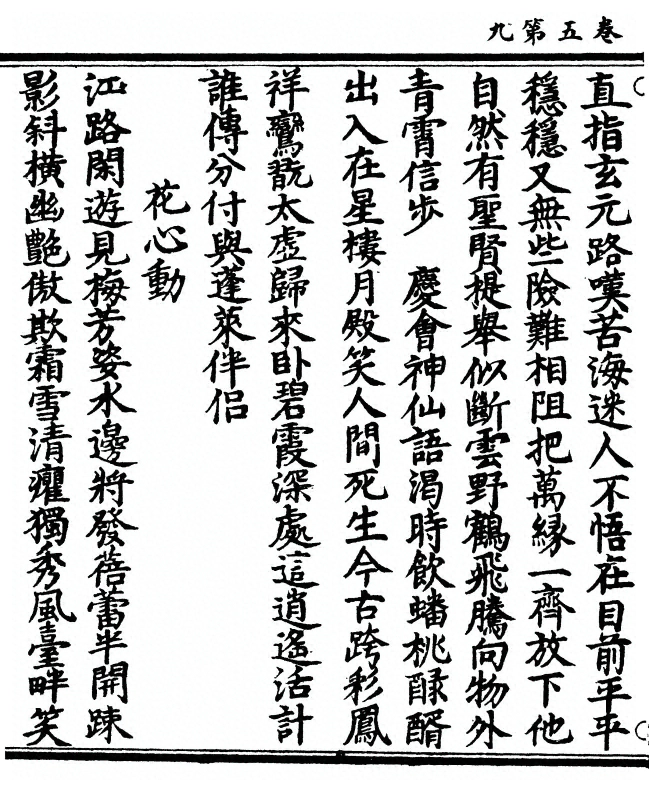 卷五第九
直指玄元路嘆苦海迷人不悟在目前平平
穩穩又無些險難相阻把萬縁一齊放下他
自然有聖賢提舉似斷雲野鶴飛騰向物外
青霄信步　慶會神仙語渴時飲蟠桃醁醑
出入在星樓月殿笑人間死生今古跨彩鳳
祥鸞翫太虛歸來卧碧霞深處這逍遙活計
誰傳分付與蓬萊伴侣
花心動
江路閑遊見梅芳姿水邊將發蓓蕾半開踈
影斜橫幽艷傲欺霜雪清癯獨秀風臺畔笑